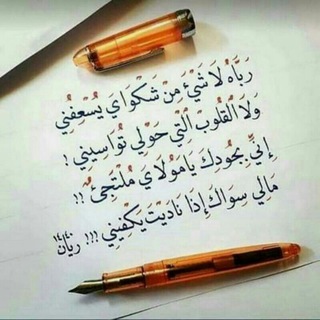 رَبَّاهُ لَا شَيْءَ مِنْ شَكْوَايَ يُسْعِفُنِي
وَلَا الْقُلُوبُ الَّتِي حَوْلِي تُوَاسِينِي !
إِنِّي بِجُودِكَ يَا مَوْلَايَ مُلْتَجِئٌ !!
مَالِي سِوَاكَ إِذَا نَادَيْتُ يَكْفِينِي !!! ريان ١٤٤٠